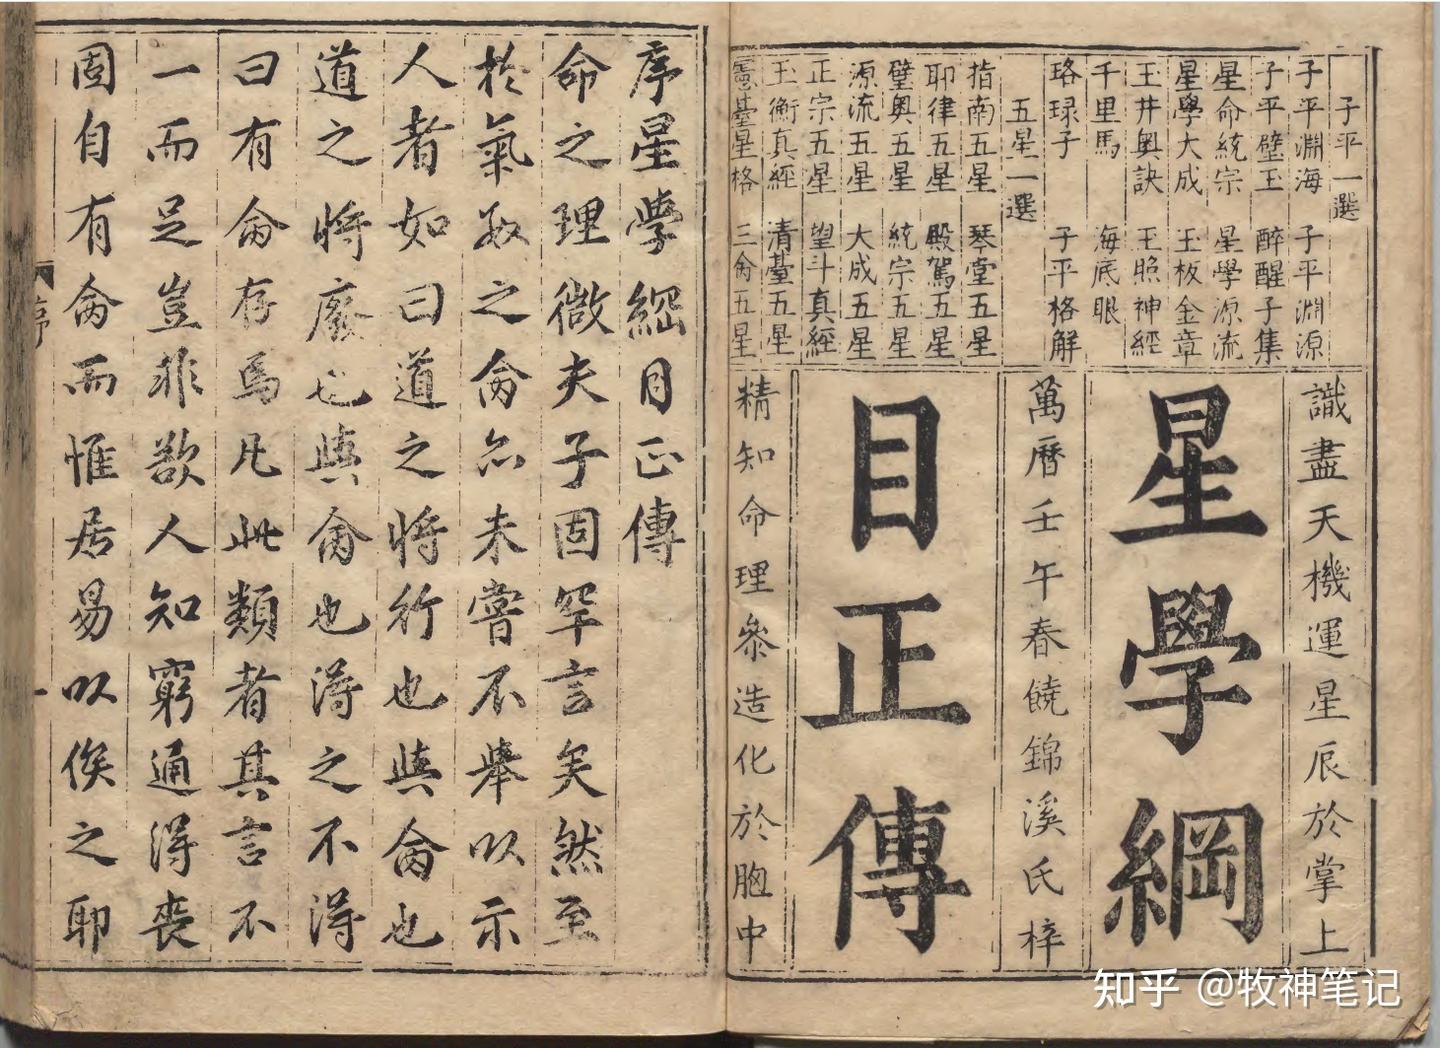 子平一選
子平淵海 子平淵源
子平璧玉 醉醒子集
星命統宗 星學源流
星學大成 玉板金章
玉井奧訣 玉照神經
千里馬 海底眼
珞琭子 子平格解
五星一選
指南五星 琴堂五星
耶律五星 殿駕五星
璧奧五星 統宗五星
源流五星 大成五星
正宗五星 望斗真經
玉衡真經 清臺五星
憲臺星格 三命五星
識盡天機運星辰於掌上
星學綱
萬曆壬午春饒錦溪氏梓
目正傳
精知命理叅造化於胸中
序星學綱目正傳
命之理微夫子固罕言矣然至
於氣數之命亦未嘗不舉以示
人者如曰道之將行也與命也
道之將廢也與命也得之不得
曰有命存焉凡此類者其言不
一而足豈非欲人知窮通得喪
固自有命而惟居易以俟之耶
序
一
知乎 @牧神笔记